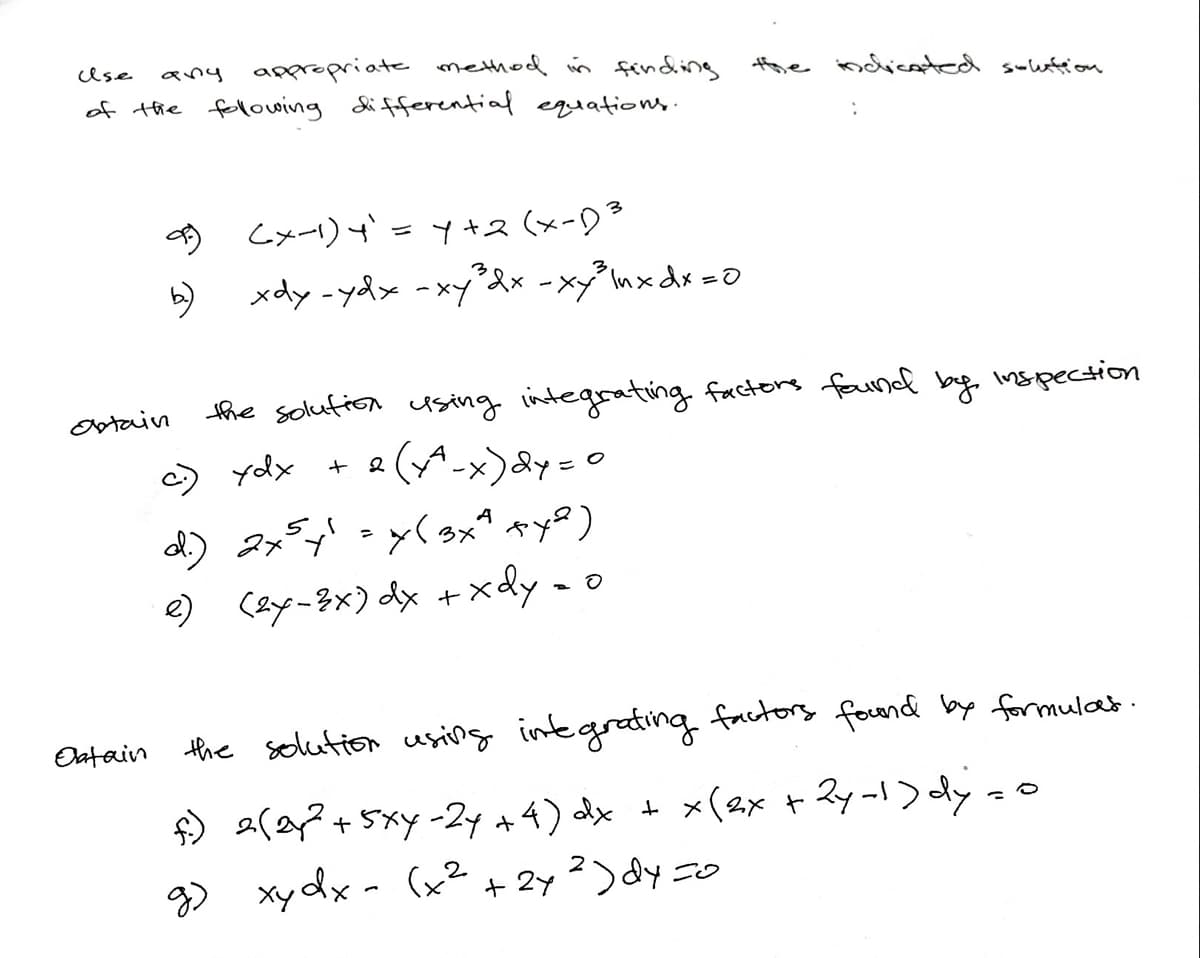 Use any appropriate method in finding the indicated solution
of the folowing differential equations. :
a.) (x-1)y' = y+2(x-1)³
b.) xdy - ydx - xy³dx - xy³lnxdx = 0
Obtain the solution using integrating factors found by inspection
c.) ydx + 2(y⁴-x)dy = 0
d.) 2x⁵y' = y(3x⁴+y²)
e) (2y-3x)dx + xdy = 0
Obtain the solution using integrating factors found by formulas.
f.) 2(2y²+5xy-2y+4)dx + x(2x+2y-1)dy = 0
g) xydx - (x²+2y²)dy = 0